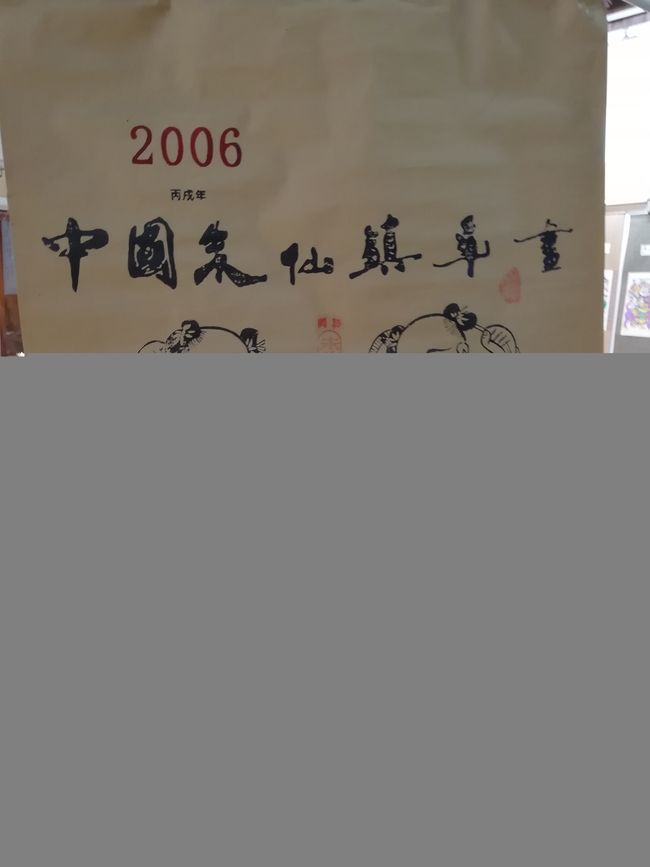 2006
丙戌年
中國朱仙鎮年畫